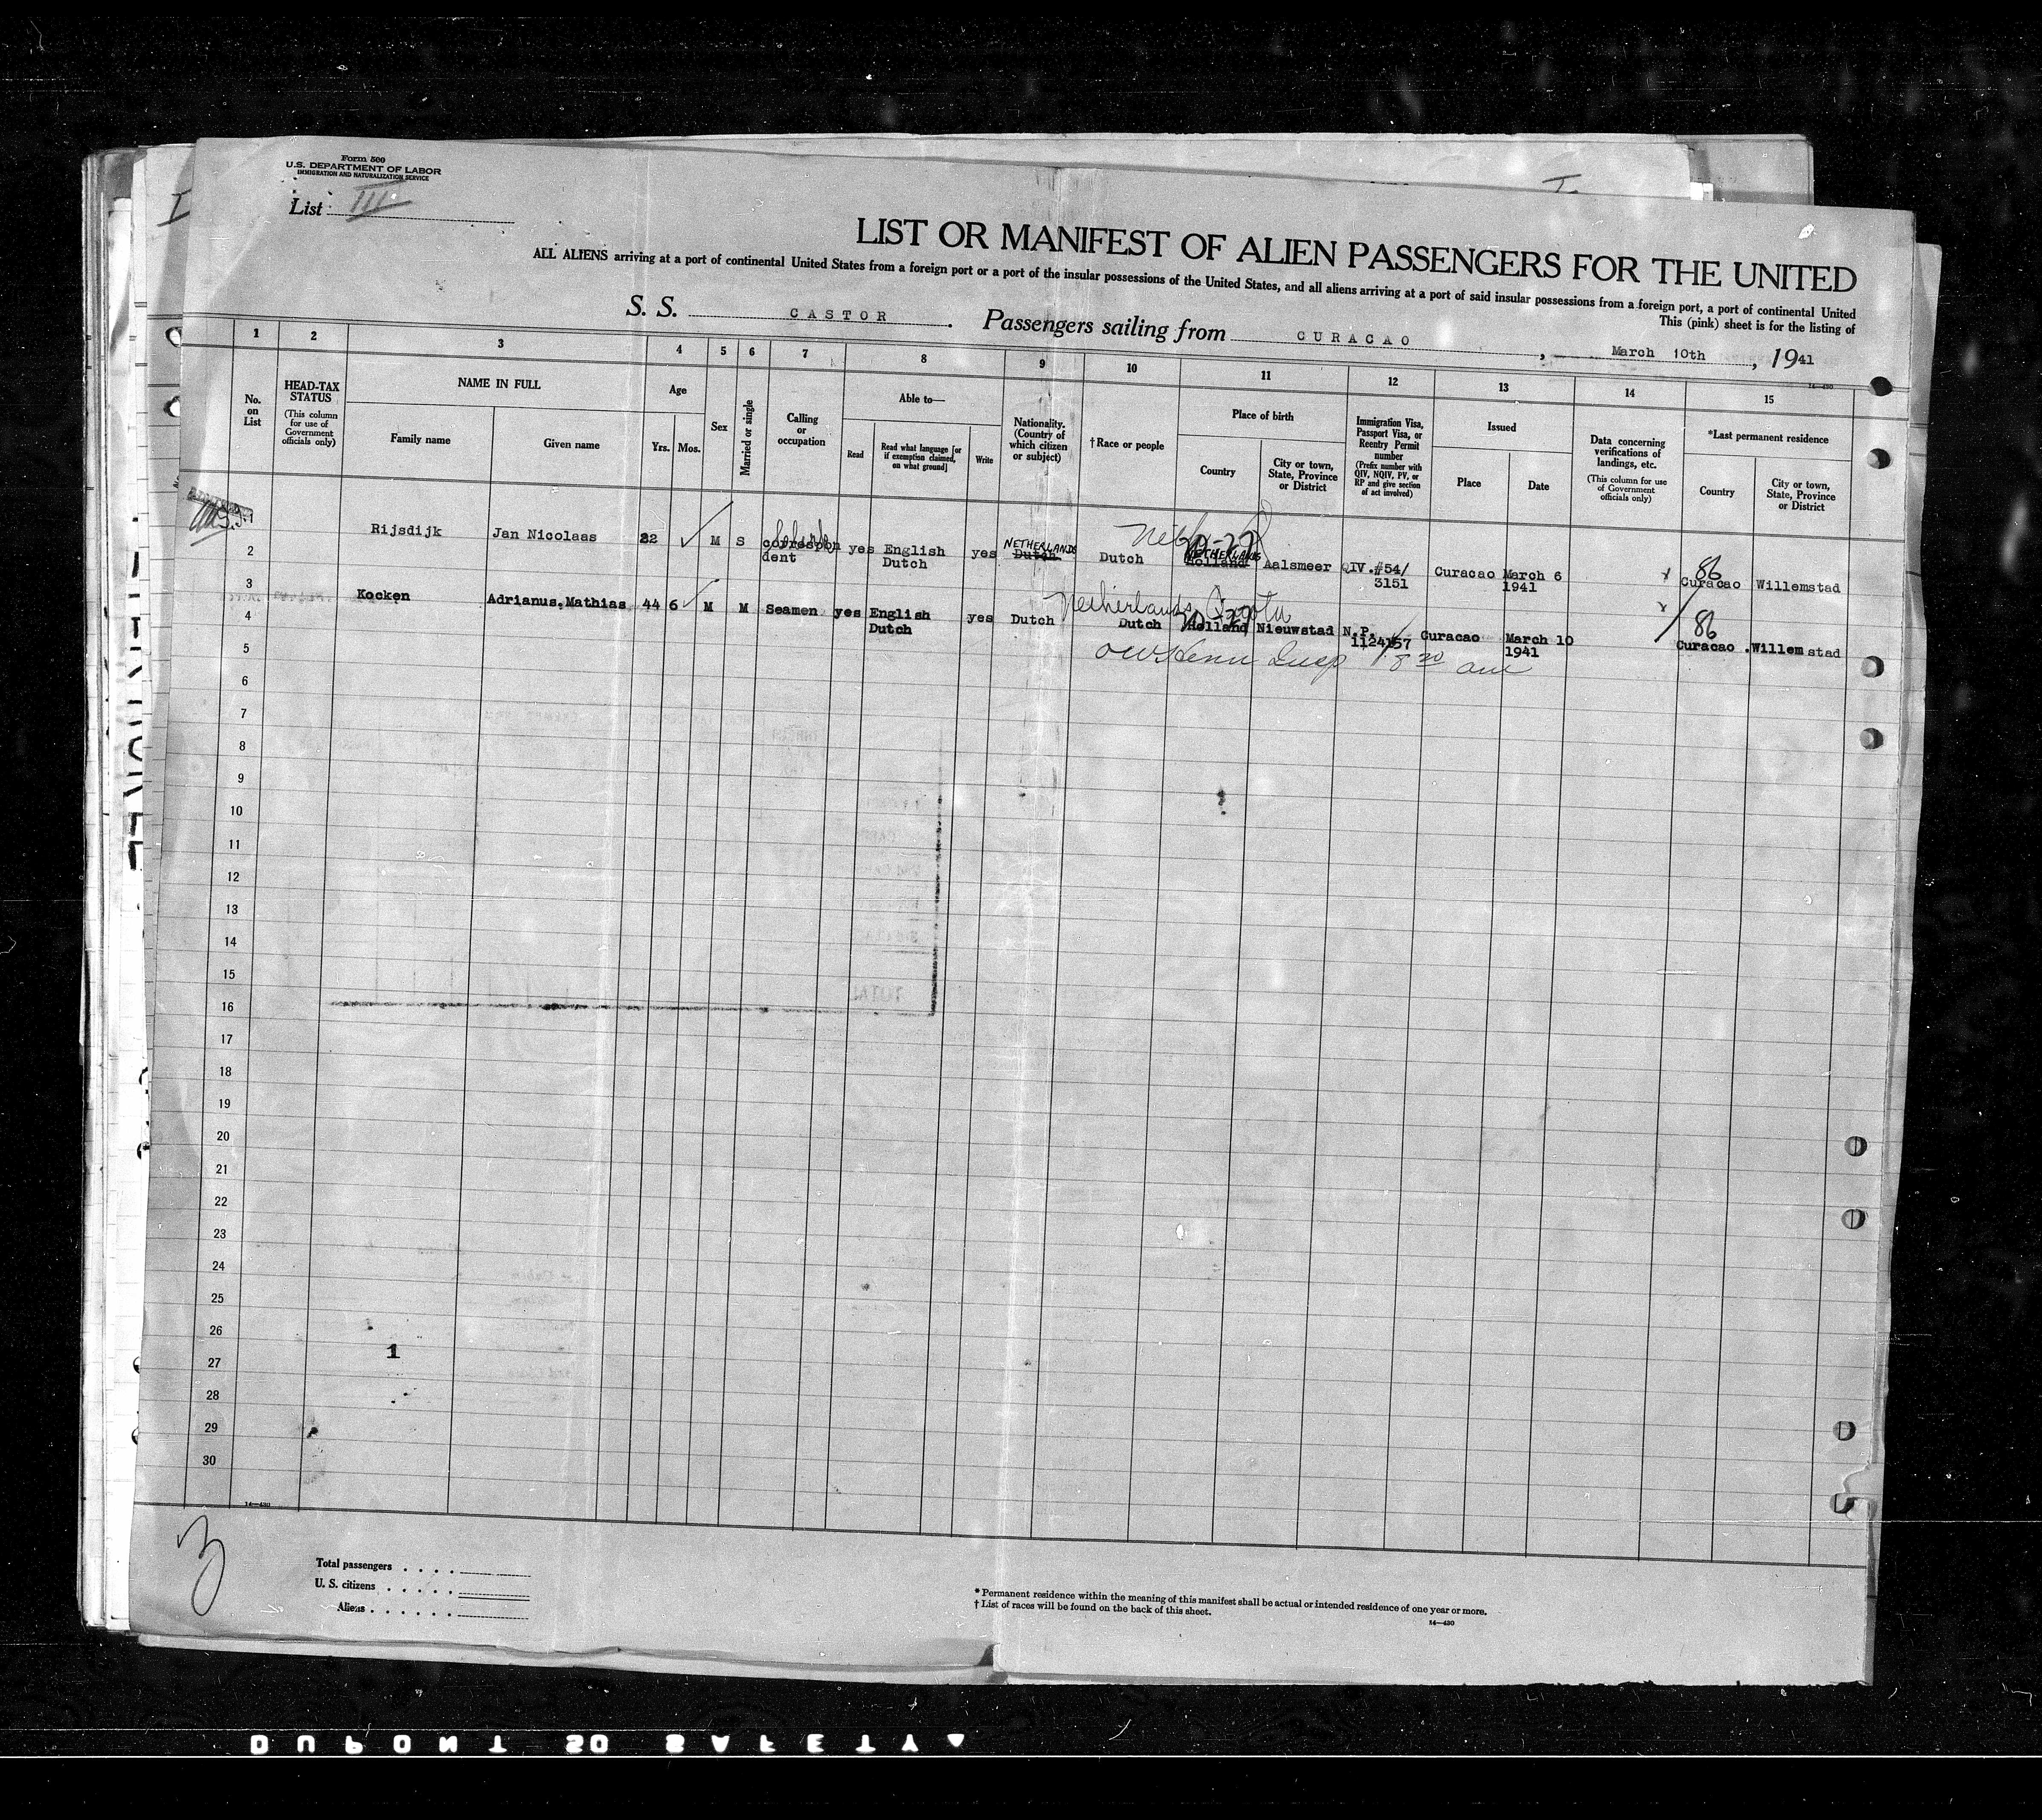 Form 500
U.S. DEPARTMENT OF LABOR
IMMIGRATION AND NATURALIZATION SERVICE
List III
LIST OR MANIFEST OF ALIEN PASSENGERS FOR THE UNITED
ALL ALIENS arriving at a port of continental United States from a foreign port or a port of the insular possessions of the United States, and all aliens arriving at a port of said insular possessions from a foreign port, a port of continental United
This (pink) sheet is for the listing of
S. S. CASTOR. Passengers sailing from CURACAO, March 10th, 1941
14—430
1 2 3 4 5 6 7 8 9 10 11 12 13 14 15
No. on List
HEAD-TAX STATUS
(This column for use of Government officials only)
NAME IN FULL
Family name
Given name
Age
Yrs. Mos.
Sex
Married or single
Calling or occupation
Able to—
Read
Read what language [or if exemption claimed, on what ground]
Write
Nationality. (Country of which citizen or subject)
†Race or people
Place of birth
Country
City or town, State, Province or District
Immigration Visa, Passport Visa, or Reentry Permit number
(Prefix number with QIV, NQIV, PV, or RP and give section of act involved)
Issued
Place
Date
Data concerning verifications of landings, etc.
(This column for use of Government officials only)
*Last permanent residence
Country
City or town, State, Province or District
1 Rijsdijk Jan Nicolaas 22 M S correspon yes English yes NETHERLANDS Dutch Dutch NETHERLANDS Holland Aalsmeer QIV.#54/ Curacao March 6 86 Curacao Willemstad
2 dent Dutch 3151 1941
3 Kocken Adrianus.Mathias 44 6 M M Seamen yes English yes Dutch Netherlands Dutch Holland Nieuwstad N.P. Curacao March 10 86 Curacao .Willemstad
4 Dutch 1124157 1941
5 Insp 8 30 am
6
7
8
9
10
11
12
13
14
15
16
17
18
19
20
21
22
23
24
25
26
1
27
28
29
30
14—430
3
Total passengers
U. S. citizens
Aliens
* Permanent residence within the meaning of this manifest shall be actual or intended residence of one year or more.
† List of races will be found on the back of this sheet.
14—430
DUPONT SAFETY